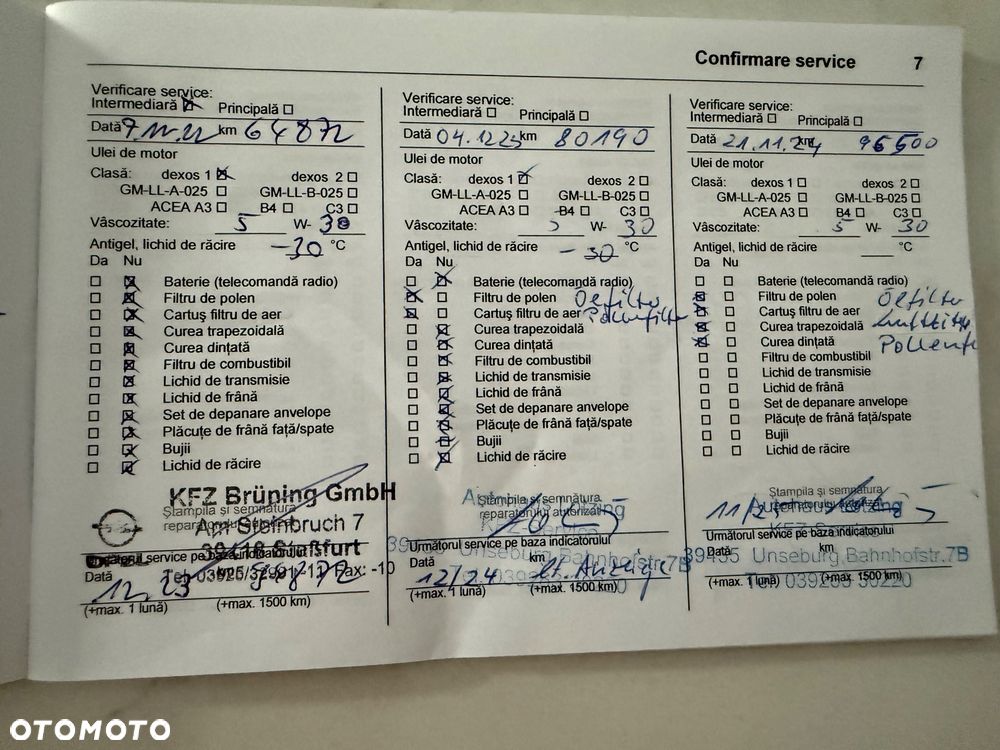 Confirmare service 7
Verificare service:
Intermediară Principală
Dată 7.11.22 km 64872
Ulei de motor
Clasă: dexos 1 dexos 2
GM-LL-A-025 GM-LL-B-025
ACEA A3 B4 C3
Vâscozitate: 5 W- 30
Antigel, lichid de răcire -30 °C
Da Nu
Baterie (telecomandă radio)
Filtru de polen
Cartuş filtru de aer
Curea trapezoidală
Curea dinţată
Filtru de combustibil
Lichid de transmisie
Lichid de frână
Set de depanare anvelope
Plăcuţe de frână faţă/spate
Bujii
Lichid de răcire
KFZ Brüning GmbH
Ştampila şi semnătura
Am Steinbruch 7
Staßfurt
service pe baza indicatorului
Dată km
Fax: -10
12 23
(+max. 1 lună) (+max. 1500 km)
Verificare service:
Intermediară Principală
Dată 04.12.23 km 80190
Ulei de motor
Clasă: dexos 1 dexos 2
GM-LL-A-025 GM-LL-B-025
ACEA A3 B4 C3
Vâscozitate: 5 W- 30
Antigel, lichid de răcire -30 °C
Da Nu
Baterie (telecomandă radio)
Filtru de polen Ölfilter
Cartuş filtru de aer Pollenfilter
Curea trapezoidală
Curea dinţată
Filtru de combustibil
Lichid de transmisie
Lichid de frână
Set de depanare anvelope
Plăcuţe de frână faţă/spate
Bujii
Lichid de răcire
Ştampila şi semnătura
reparatorului autorizat
Următorul service pe baza indicatorului
Unseburg Bahnhofstr. 7B
Dată km
12/24 lt. Anzeige
(+max. 1 lună) (+max. 1500 km)
Verificare service:
Intermediară Principală
Dată 21.11.24 km 95500
Ulei de motor
Clasă: dexos 1 dexos 2
GM-LL-A-025 GM-LL-B-025
ACEA A3 B4 C3
Vâscozitate: 5 W- 30
Antigel, lichid de răcire °C
Da Nu
Baterie (telecomandă radio)
Filtru de polen Ölfilter
Cartuş filtru de aer
Curea trapezoidală
Curea dinţată
Filtru de combustibil
Lichid de transmisie
Lichid de frână
Set de depanare anvelope
Plăcuţe de frână faţă/spate
Bujii
Lichid de răcire
Ştampila şi semnătura
11/25
Următorul service pe baza indicatorului
Dată km
39435 Unseburg Bahnhofstr. 7B
Tel. 039263 30220
(+max. 1 lună) (+max. 1500 km)
OTOMOTO